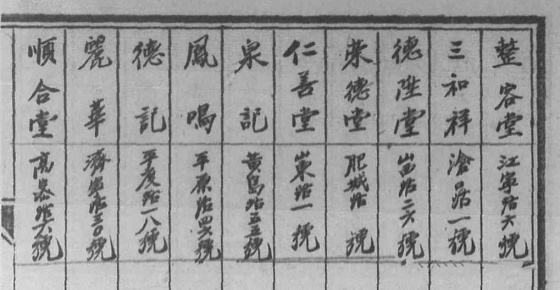 整容堂 江寧路六號
三和祥 滄口路一號
德陞堂 路二六號
東德堂 肥城路 號
仁善堂 東路一號
泉記 黃島路五五號
鳳鳴 平原路四六號
德記 平度路一八號
麗華 濟寧路三〇號
順合堂 高 路六號